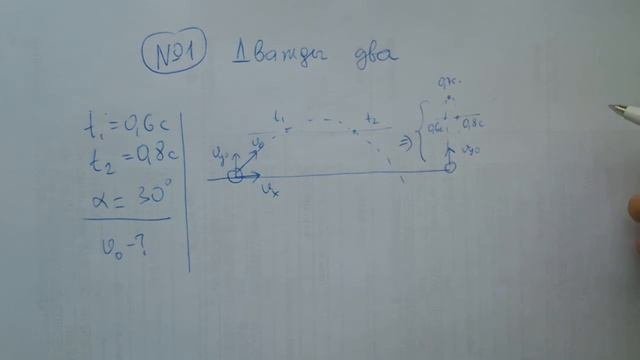 №1 Дважды два
t₁ = 0,6 c
t₂ = 0,8 c
α = 30°
v₀ - ?
t₁
t₂
v₀
vᵧ₀
vₓ
⇒
0,7c
0,6c
0,8c
vᵧ₀